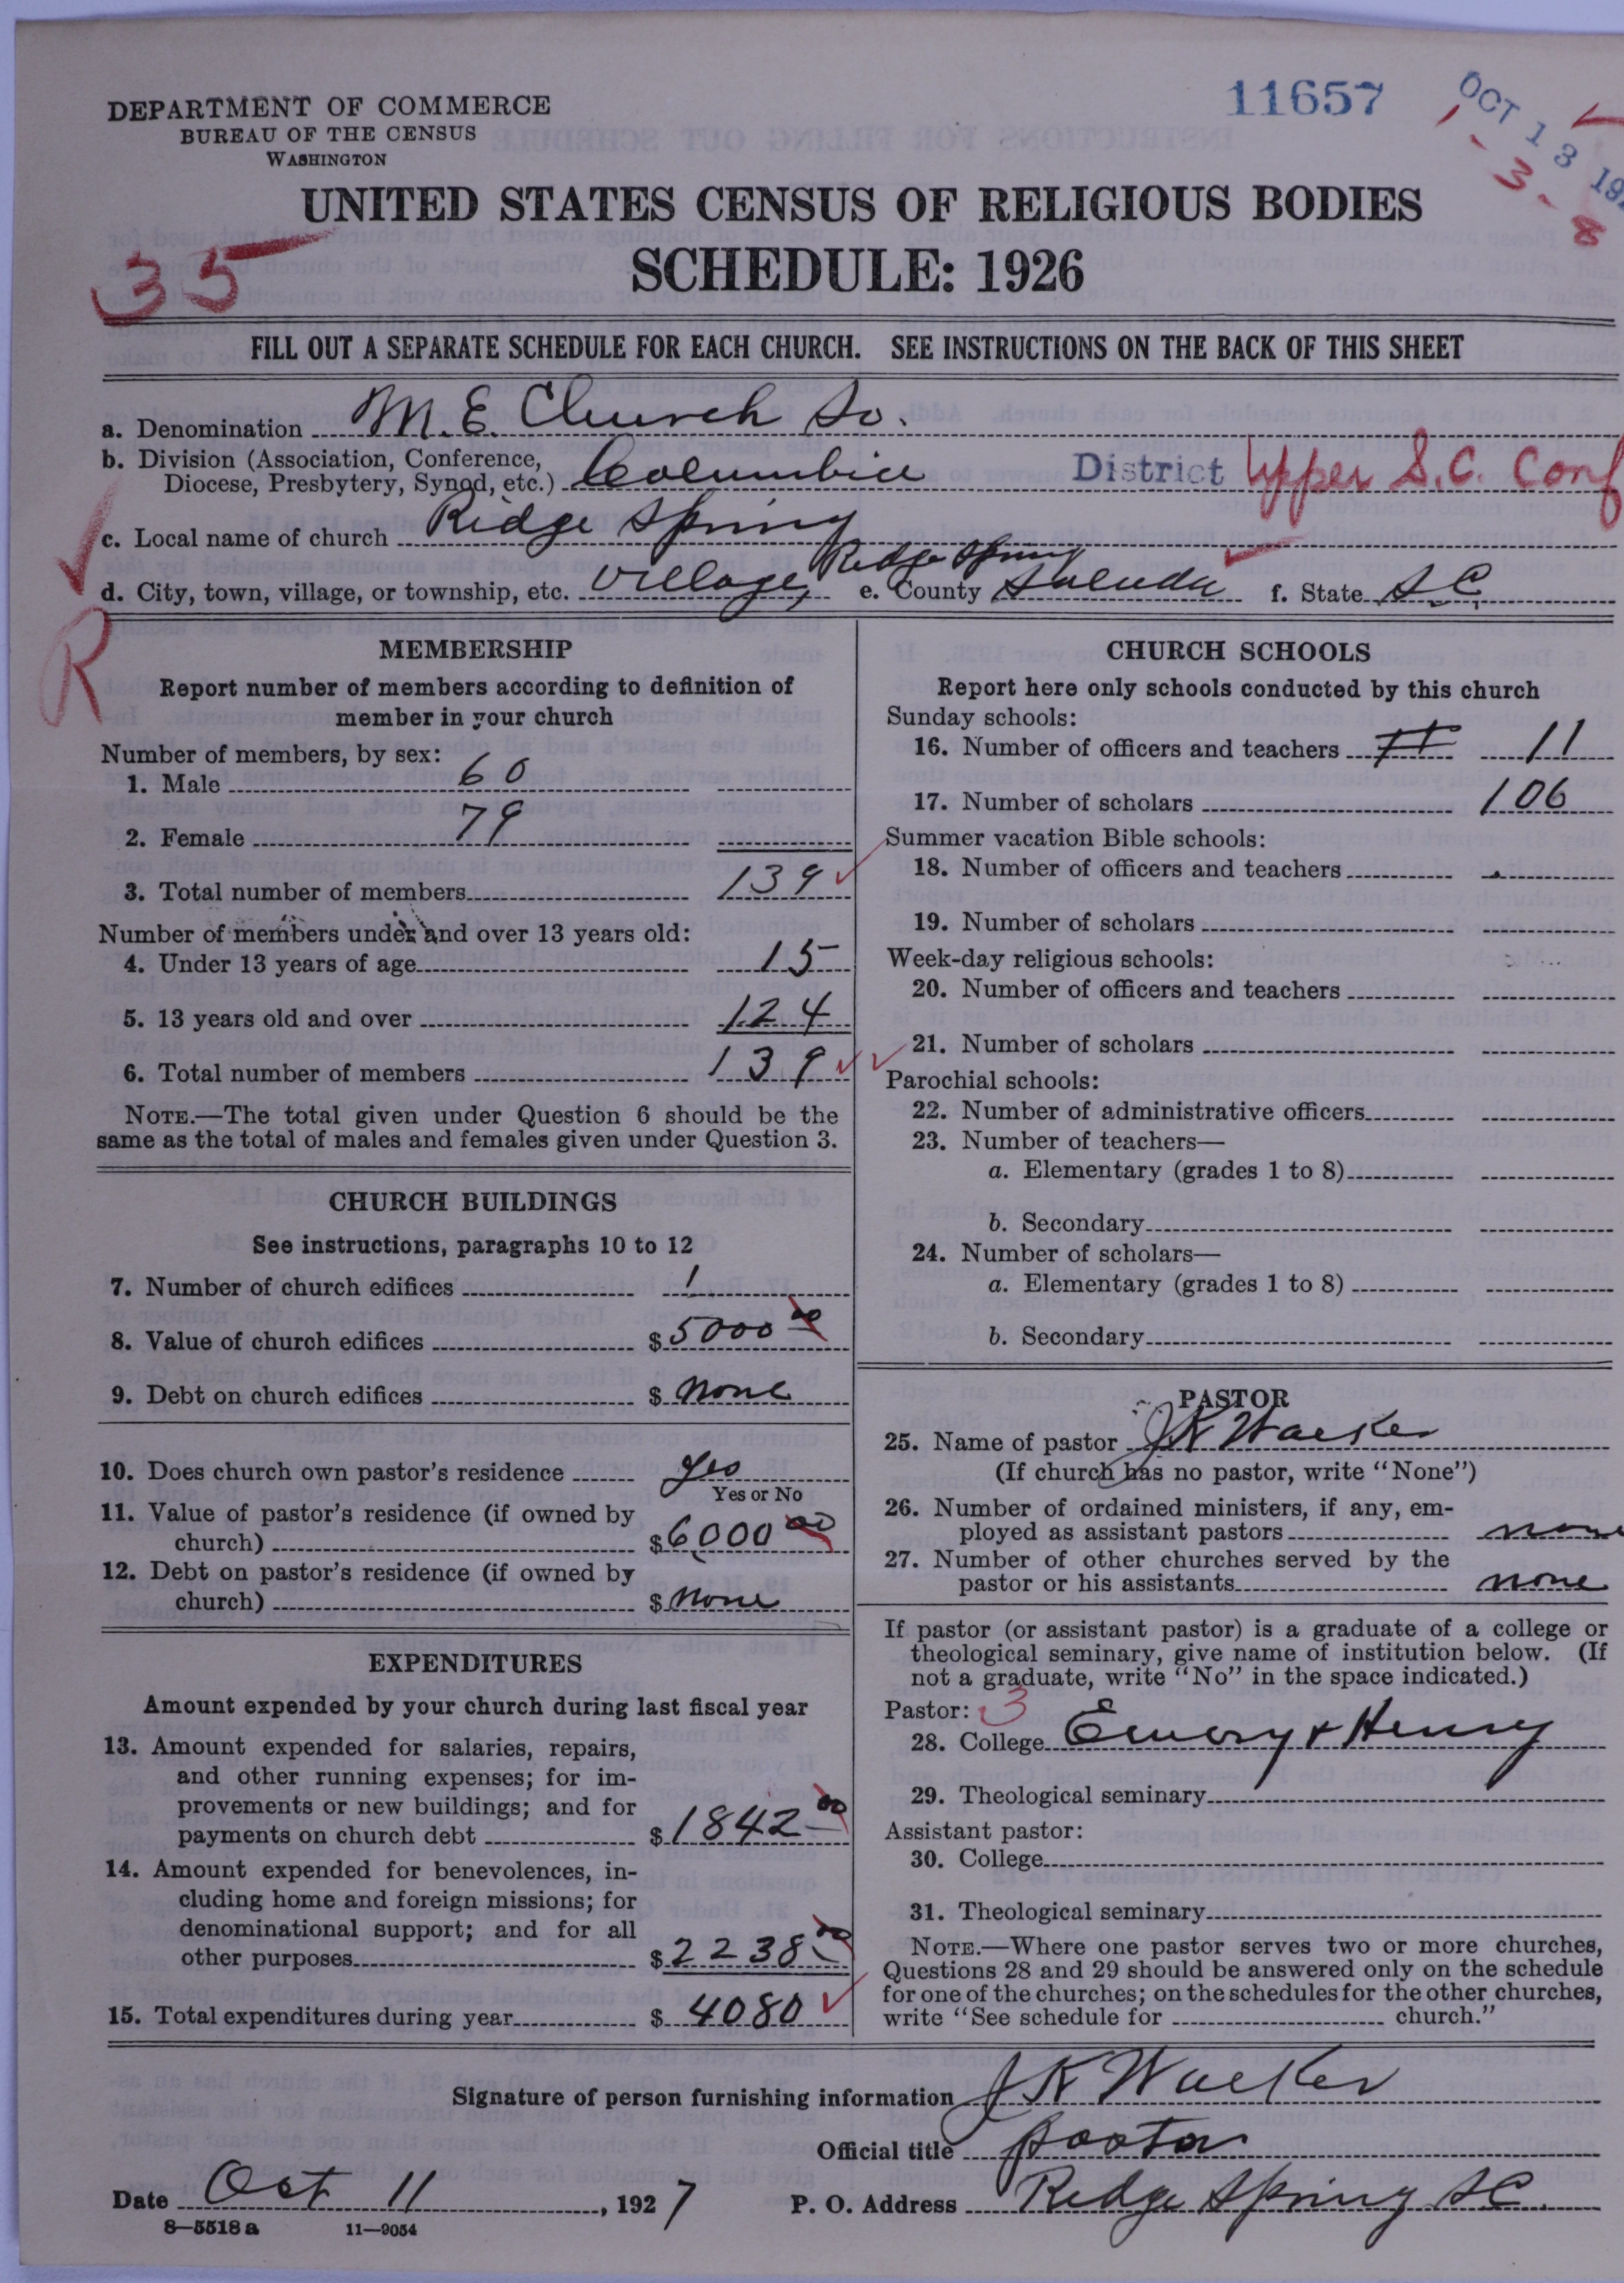 11657
OCT 13 19
3-8
DEPARTMENT OF COMMERCE
BUREAU OF THE CENSUS
WASHINGTON
UNITED STATES CENSUS OF RELIGIOUS BODIES
SCHEDULE: 1926
35
FILL OUT A SEPARATE SCHEDULE FOR EACH CHURCH. SEE INSTRUCTIONS ON THE BACK OF THIS SHEET
a. Denomination M. E. Church So.
b. Division (Association, Conference, Diocese, Presbytery, Synod, etc.) Columbia District Upper S.C. Conf
c. Local name of church Ridge Spring
Ridge Spring
d. City, town, village, or township, etc. Village, e. County Saluda f. State S.C.
R
MEMBERSHIP
Report number of members according to definition of
member in your church
Number of members, by sex:
1. Male 60
2. Female 79
3. Total number of members 139
Number of members under and over 13 years old:
4. Under 13 years of age 15
5. 13 years old and over 124
6. Total number of members 139
NOTE.—The total given under Question 6 should be the
same as the total of males and females given under Question 3.
CHURCH BUILDINGS
See instructions, paragraphs 10 to 12
7. Number of church edifices 1
8. Value of church edifices $5000 00
9. Debt on church edifices $ none
10. Does church own pastor's residence yes
Yes or No
11. Value of pastor's residence (if owned by
church) $6000 00
12. Debt on pastor's residence (if owned by
church) $ none
EXPENDITURES
Amount expended by your church during last fiscal year
13. Amount expended for salaries, repairs,
and other running expenses; for im-
provements or new buildings; and for
payments on church debt $1842 00
14. Amount expended for benevolences, in-
cluding home and foreign missions; for
denominational support; and for all
other purposes $2238 00
15. Total expenditures during year $ 4080
CHURCH SCHOOLS
Report here only schools conducted by this church
Sunday schools:
16. Number of officers and teachers 11 11
17. Number of scholars 106
Summer vacation Bible schools:
18. Number of officers and teachers
19. Number of scholars
Week-day religious schools:
20. Number of officers and teachers
21. Number of scholars
Parochial schools:
22. Number of administrative officers
23. Number of teachers—
a. Elementary (grades 1 to 8)
b. Secondary
24. Number of scholars—
a. Elementary (grades 1 to 8)
b. Secondary
PASTOR
25. Name of pastor J K Walker
(If church has no pastor, write "None")
26. Number of ordained ministers, if any, em-
ployed as assistant pastors none
27. Number of other churches served by the
pastor or his assistants none
If pastor (or assistant pastor) is a graduate of a college or
theological seminary, give name of institution below. (If
not a graduate, write "No" in the space indicated.)
Pastor: 3
28. College Emory & Henry
29. Theological seminary
Assistant pastor:
30. College
31. Theological seminary
NOTE.—Where one pastor serves two or more churches,
Questions 28 and 29 should be answered only on the schedule
for one of the churches; on the schedules for the other churches,
write "See schedule for church."
Signature of person furnishing information J K Walker
Official title pastor
Date Oct 11, 1927 P. O. Address Ridge Spring SC
8—5518 a 11—9054